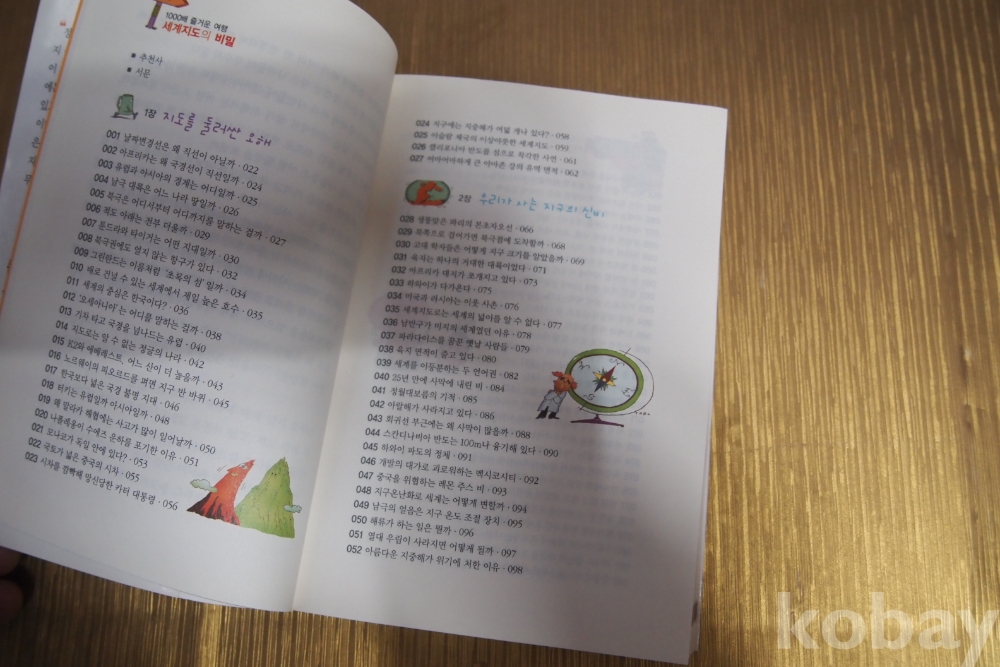 1000배 즐거운 여행
세계지도의 비밀
추천사
서문
1장 지도를 둘러싼 오해
001 날짜변경선은 왜 직선이 아닐까 · 022
002 아프리카는 왜 국경선이 직선일까 · 024
003 유럽과 아시아의 경계는 어디일까 · 025
004 남극 대륙은 어느 나라 땅일까 · 026
005 북극은 어디서부터 어디까지를 말하는 걸까 · 027
006 적도 아래는 전부 더울까 · 029
007 툰드라와 타이거는 어떤 지대일까 · 030
008 북극권에도 얼지 않는 항구가 있다 · 032
009 그린란드는 이름처럼 '초록의 섬'일까 · 034
010 배로 건널 수 있는 세계에서 제일 높은 호수 · 035
011 세계의 중심은 한국이다? · 036
012 '오세아니아'는 어디를 말하는 걸까 · 038
013 기차 타고 국경을 넘나드는 유럽 · 040
014 지도로는 알 수 없는 정글의 나라 · 042
015 K2와 에베레스트, 어느 산이 더 높을까 · 043
016 노르웨이의 피오르드를 펴면 지구 반 바퀴 · 045
017 한국보다 넓은 국경 불명 지대 · 046
018 터키는 유럽일까 아시아일까 · 048
019 왜 말라카 해협에는 사고가 많이 일어날까 · 050
020 나폴레옹이 수에즈 운하를 포기한 이유 · 051
021 모나코가 독일 안에 있다? · 053
022 국토가 넓은 중국의 시차 · 055
023 시차를 깜빡해 망신당한 카터 대통령 · 056
024 지구에는 지중해가 여덟 개나 있다? · 058
025 이슬람 제국의 이상야릇한 세계지도 · 059
026 캘리포니아 반도를 섬으로 착각한 사연 · 061
027 어마어마하게 큰 아마존 강의 유역 면적 · 062
2장 우리가 사는 지구의 신비
028 생뚱맞은 파리의 본초자오선 · 066
029 북쪽으로 걸어가면 북극점에 도착할까 · 068
030 고대 학자들은 어떻게 지구 크기를 알았을까 · 069
031 육지는 하나의 거대한 대륙이었다 · 071
032 아프리카 대지가 쪼개지고 있다 · 073
033 하와이가 다가온다 · 075
034 미국과 러시아는 이웃 사촌 · 076
035 세계지도로는 세계의 넓이를 알 수 없다 · 077
036 남반구가 미지의 세계였던 이유 · 078
037 파라다이스를 꿈꾼 옛날 사람들 · 079
038 육지 면적이 줄고 있다 · 080
039 세계를 이등분하는 두 언어권 · 082
040 25년 만에 사막에 내린 비 · 084
041 정월대보름의 기적 · 085
042 아랄해가 사라지고 있다 · 086
043 회귀선 부근에는 왜 사막이 많을까 · 088
044 스칸디나비아 반도는 100m나 융기해 있다 · 090
045 하와이 파도의 정체 · 091
046 개발의 대가로 괴로워하는 멕시코시티 · 092
047 중국을 위협하는 레몬 주스 비 · 093
048 지구온난화로 세계는 어떻게 변할까 · 094
049 남극의 얼음은 지구 온도 조절 장치 · 095
050 해류가 하는 일은 뭘까 · 096
051 열대 우림이 사라지면 어떻게 될까 · 097
052 아름다운 지중해가 위기에 처한 이유 · 098
kobay